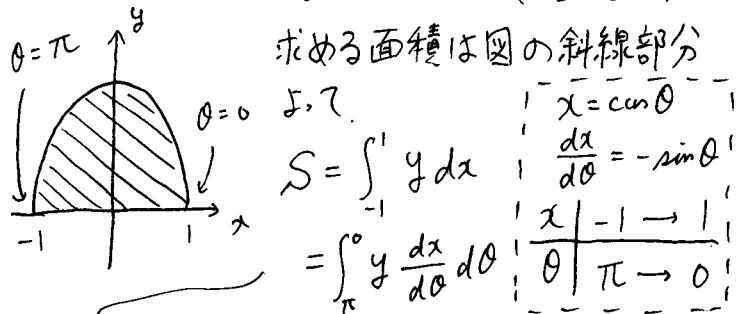 y
θ=π
θ=0
-1
1
x
求める面積は図の斜線部分
よって
S = ∫_{-1}^{1} y dx
= ∫_{π}^{0} y dx/dθ dθ
x = cosθ
dx/dθ = -sinθ
x | -1 → 1
θ | π → 0